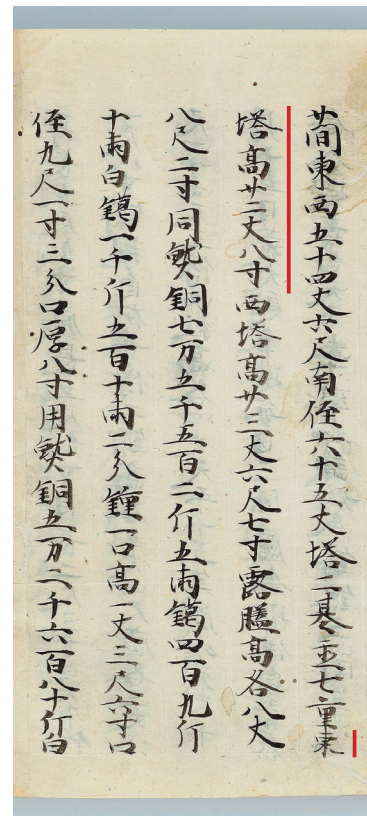 廿間東西五十四丈六尺南俓六十五丈塔二基並七重東
塔高廿三丈八寸西塔高廿三丈六尺七寸露盤高各八丈
八尺二寸同熟銅七万五千五百二斤五兩鑞四百九斤
十兩白鑞一千斤五百十兩二分鍾一口高一丈三尺六寸口
俓九尺一寸三分口厚八寸用熟銅五万二千六百八十斤白